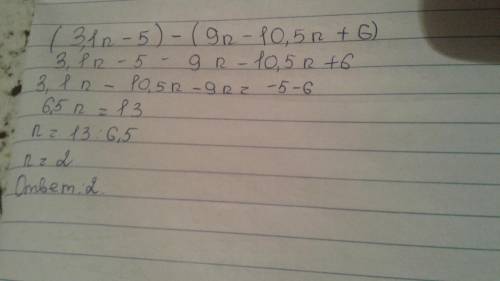 (3,1n - 5) - (9n - 10,5n + 6)
3,1n - 5 - 9n - 10,5n + 6
3,1n - 10,5n - 9n = -5 - 6
6,5n = 13
n = 13 : 6,5
n = 2
Ответ: 2.